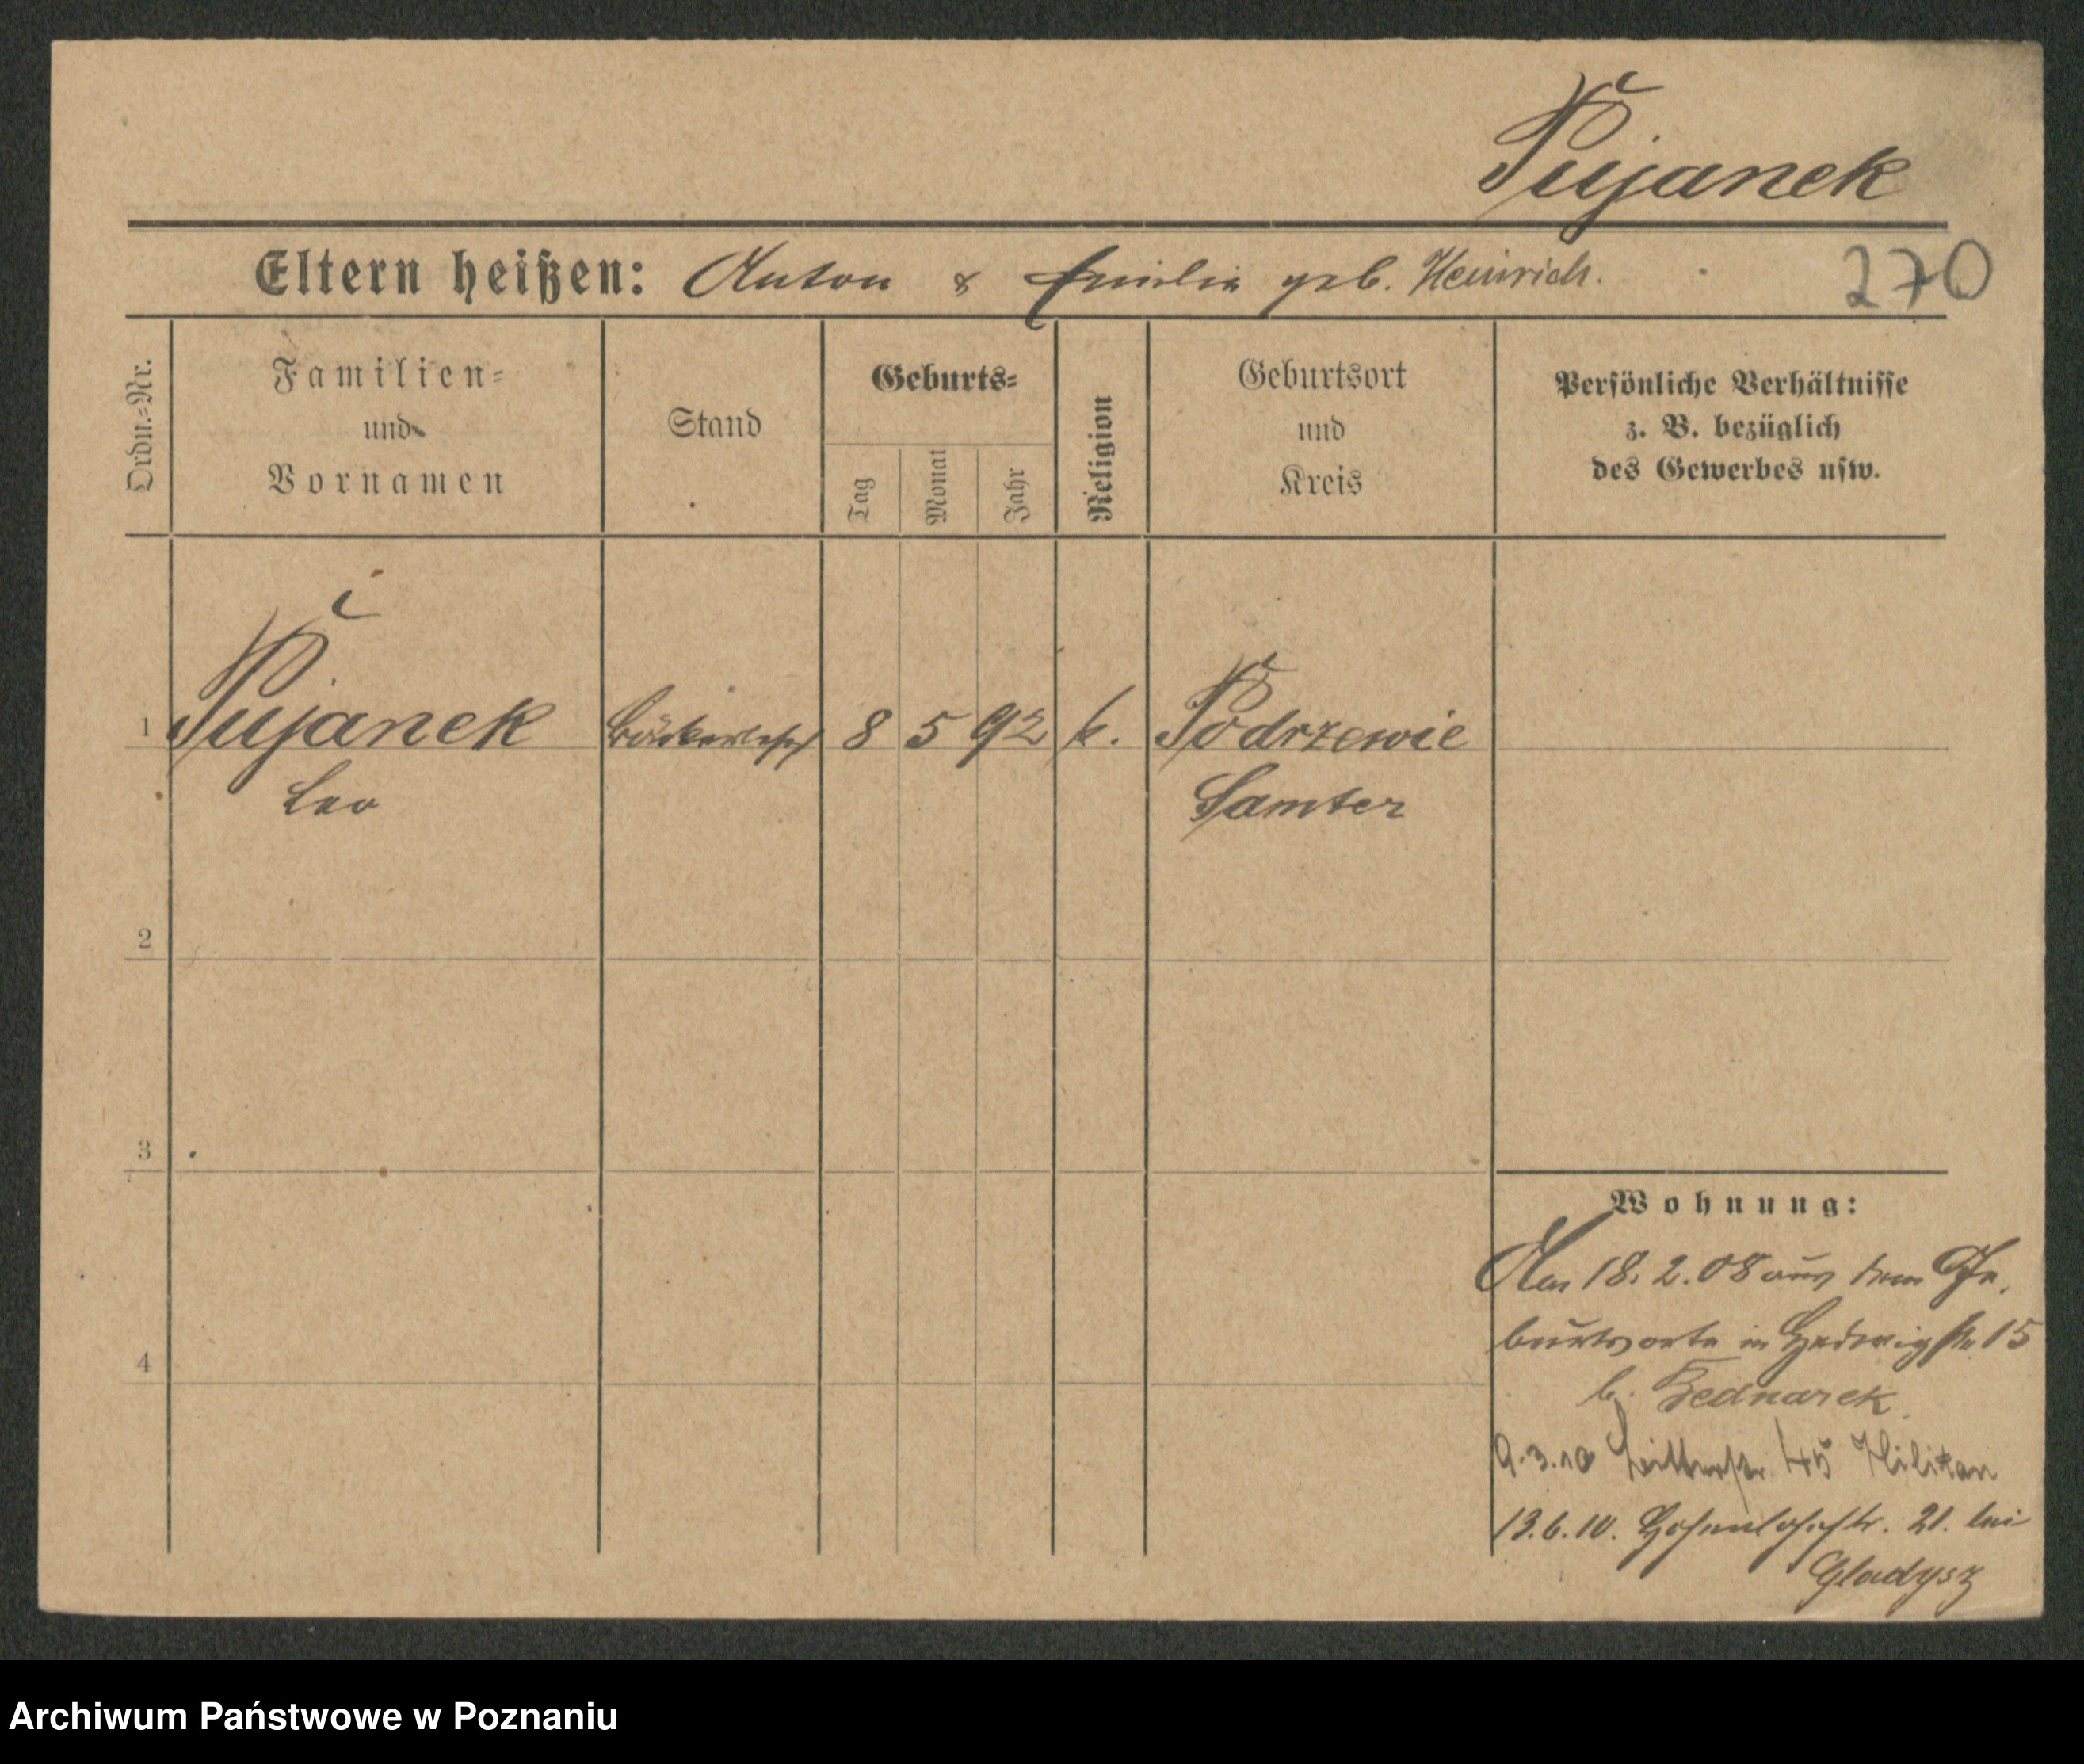 Pujanek
Eltern heißen: Anton & Emilie geb. Heinrich.
270
Ordn.-Nr.
Familien-
und
Vornamen
Stand
Geburts-
Tag
Monat
Jahr
Religion
Geburtsort
und
Kreis
Persönliche Verhältnisse
z. B. bezüglich
des Gewerbes usw.
1 Pujanek Bäckerlehrl 8 5 92 k. Podrzewie
Leo Samter
2
3
4
Wohnung:
Am 18.2.08 aus dem Ge-
burtsorte in Hedwigstr 15
b. Bednarek
9.3.10 45
13.6.10. Hohenlohestr. 21. bei
Gladysz
Archiwum Państwowe w Poznaniu